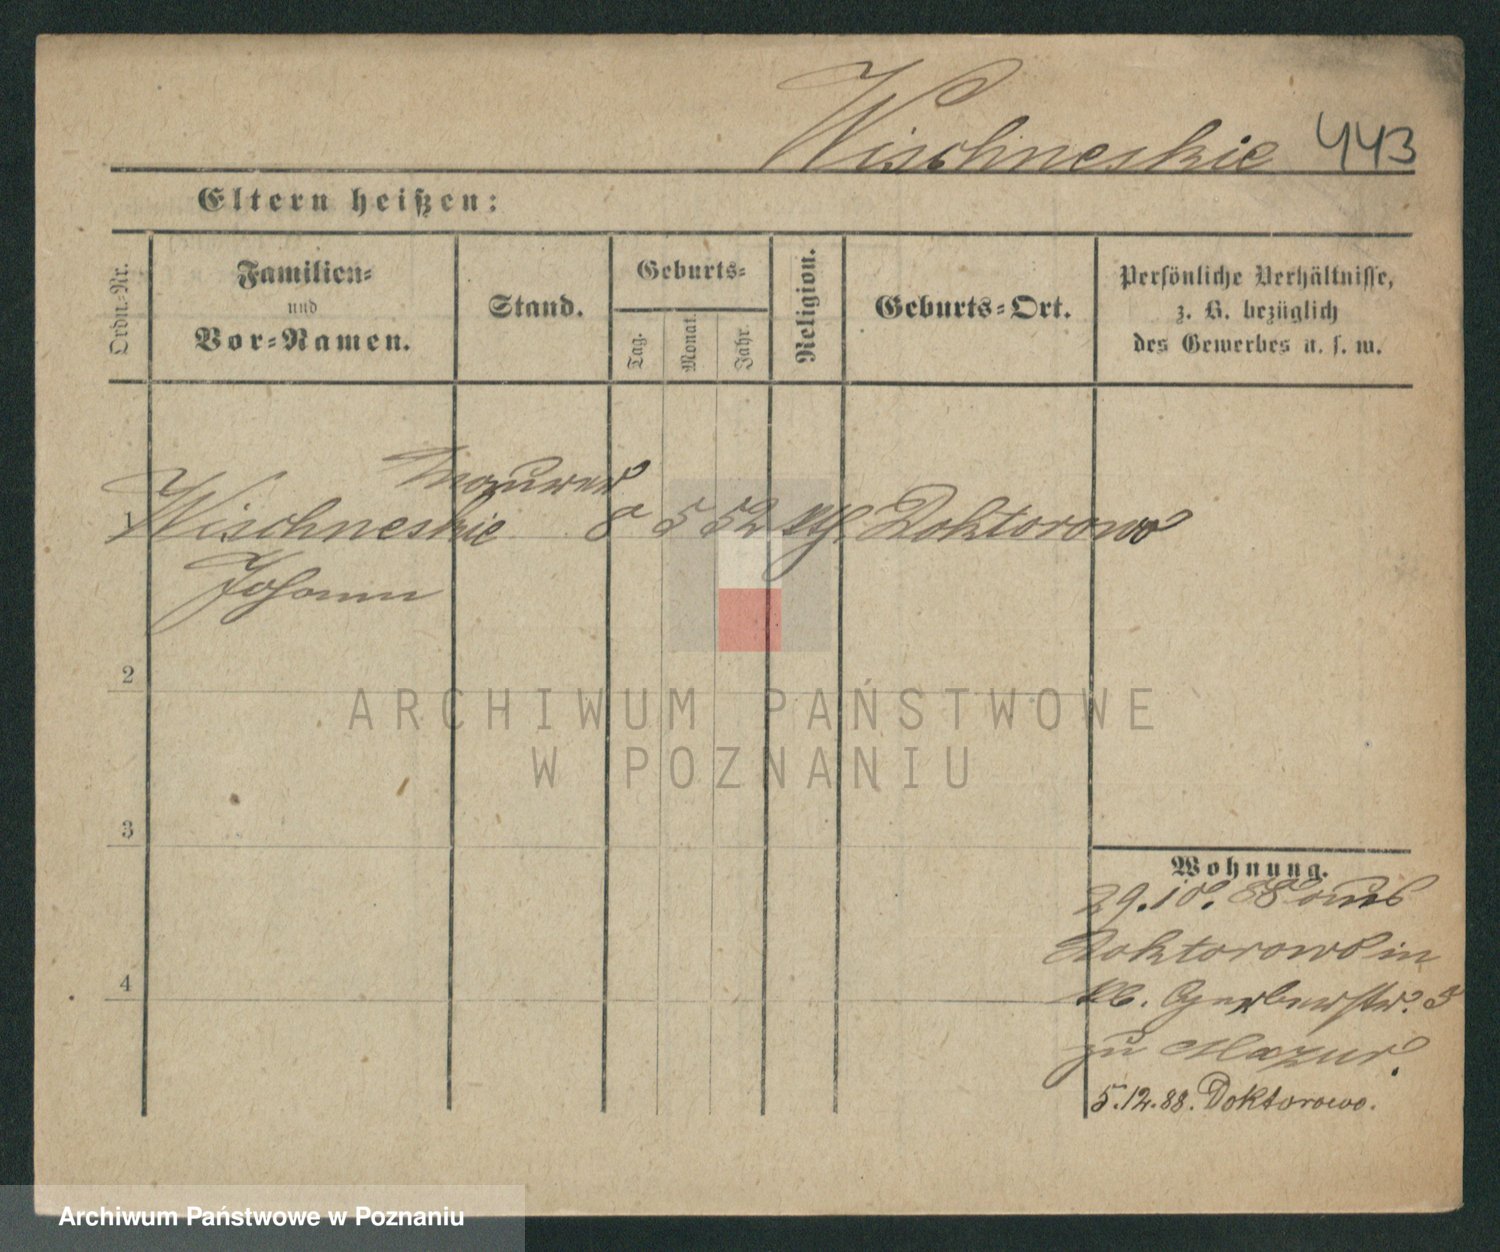 Wischneskie 443
Eltern heißen:
Ordn.-Nr.
Familien-
und
Vor-Namen.
Stand.
Geburts-
Tag.
Monat.
Jahr.
Religion.
Geburts-Ort.
Persönliche Verhältnisse,
z. B. bezüglich
des Gewerbes u. s. w.
Maurer
1 Wischneskie 8 5 52 kth. Doktorowo
Johann
2
ARCHIWUM PAŃSTWOWE
W POZNANIU
3
Wohnung.
29.10.88 aus
Doktorowo in
kl. Gerberstr. 3
zu Mazur.
4
5.12.88. Doktorowo.
Archiwum Państwowe w Poznaniu